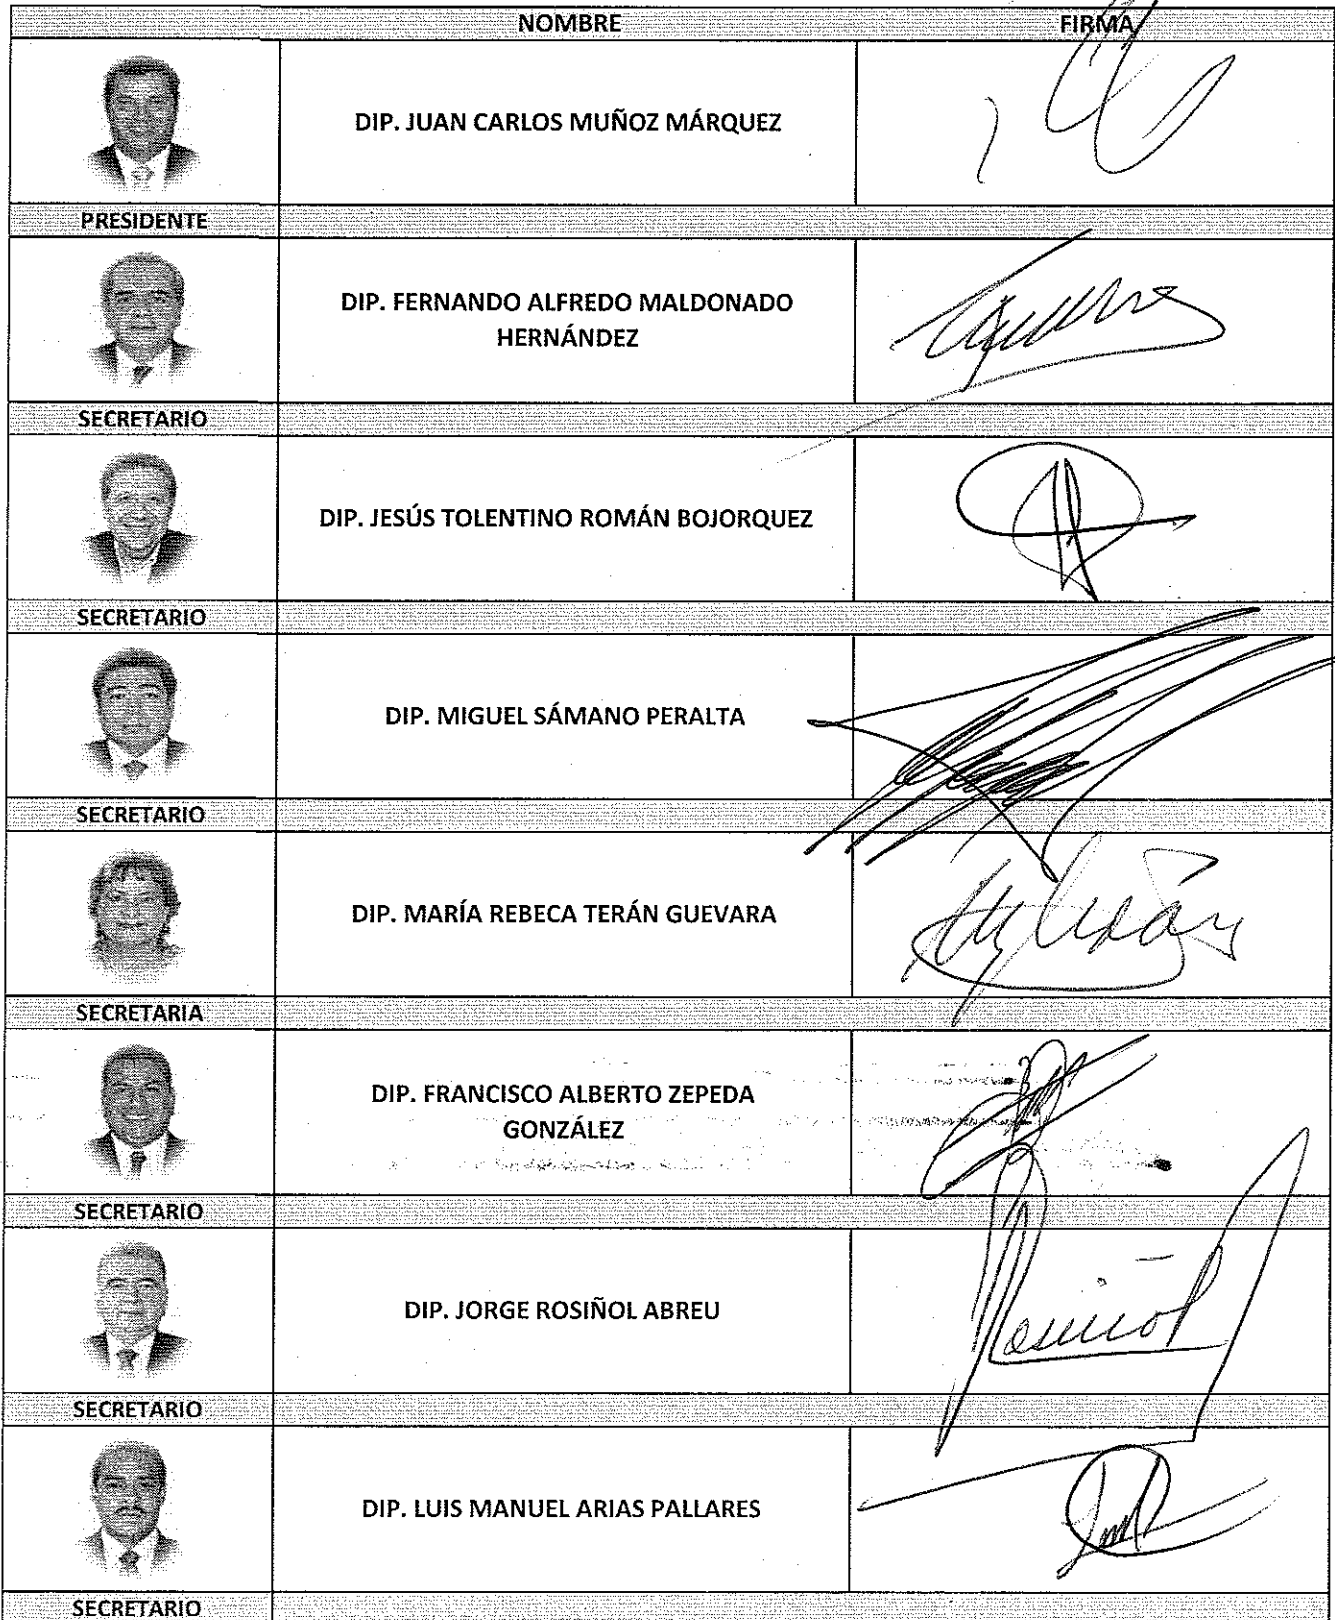 NOMBRE FIRMA
DIP. JUAN CARLOS MUÑOZ MÁRQUEZ
PRESIDENTE
DIP. FERNANDO ALFREDO MALDONADO
HERNÁNDEZ
SECRETARIO
DIP. JESÚS TOLENTINO ROMÁN BOJORQUEZ
SECRETARIO
DIP. MIGUEL SÁMANO PERALTA
SECRETARIO
DIP. MARÍA REBECA TERÁN GUEVARA
SECRETARIA
DIP. FRANCISCO ALBERTO ZEPEDA
GONZÁLEZ
SECRETARIO
DIP. JORGE ROSIÑOL ABREU
Rosiñol
SECRETARIO
DIP. LUIS MANUEL ARIAS PALLARES
SECRETARIO